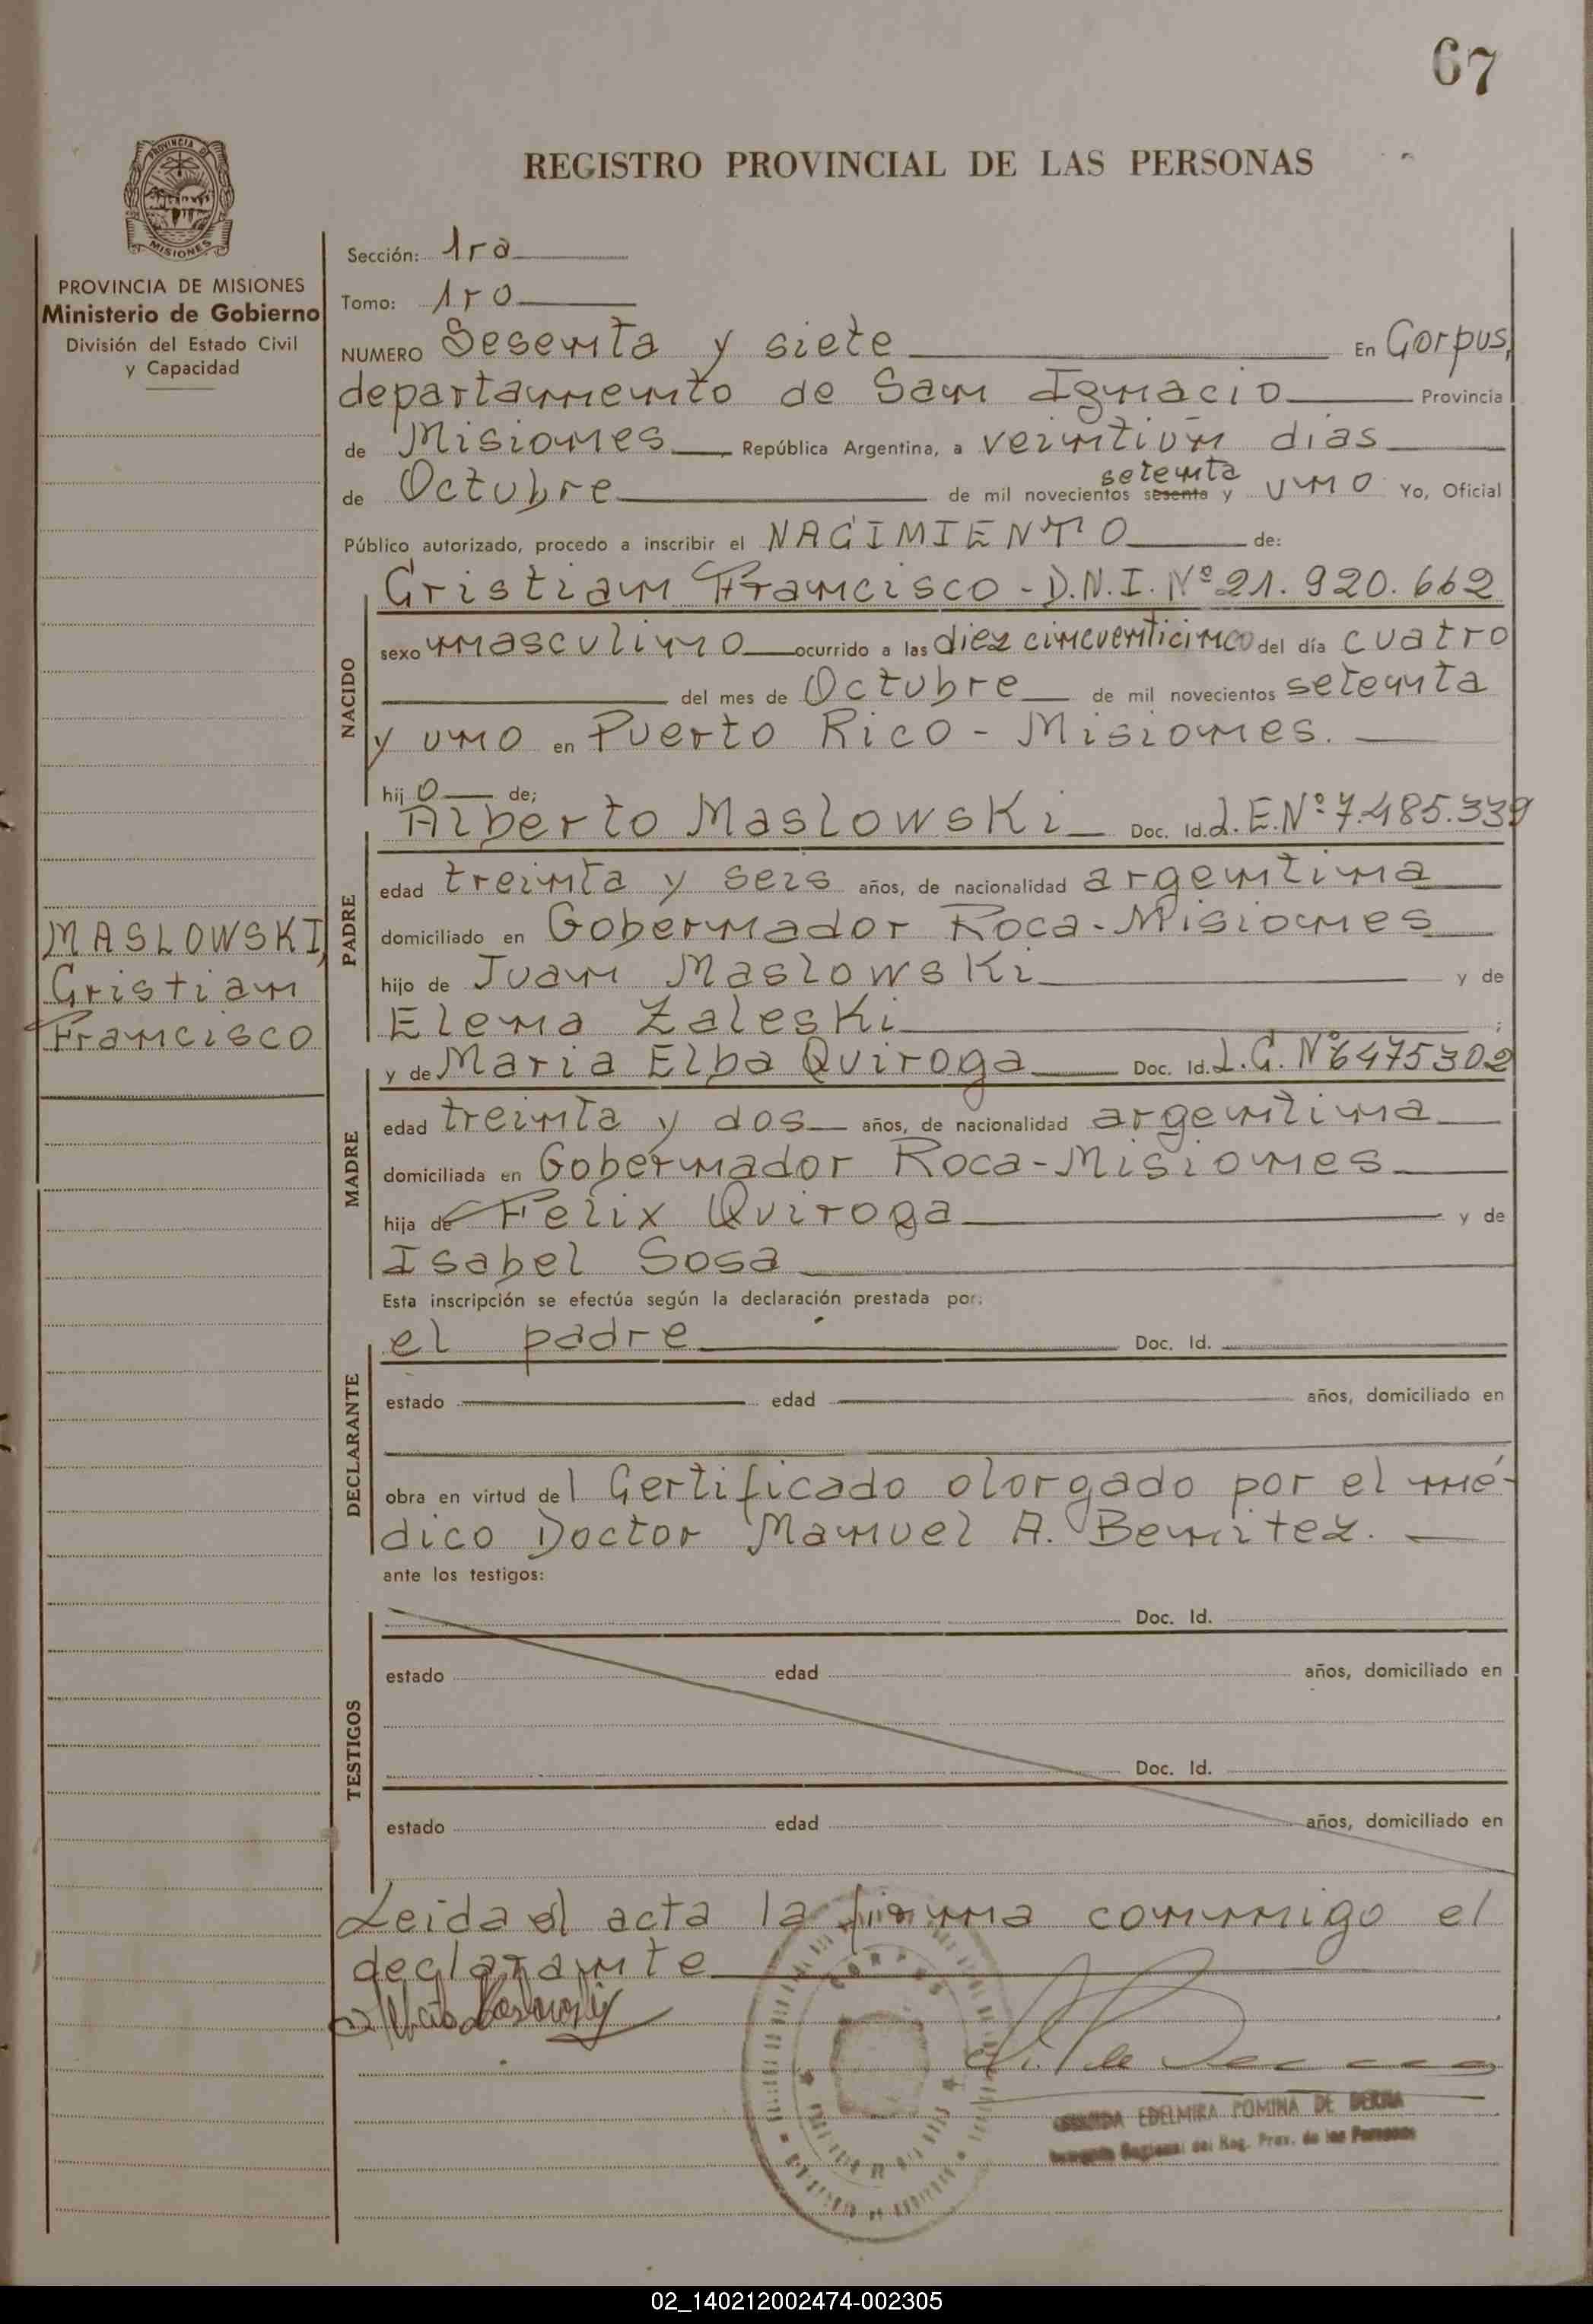 67
REGISTRO PROVINCIAL DE LAS PERSONAS
PROVINCIA DE
MISIONES
PROVINCIA DE MISIONES
Ministerio de Gobierno
División del Estado Civil
y Capacidad
Sección: 1ra
Tomo: 1ro
NUMERO Sesenta y siete En Corpus,
departamento de San Ignacio Provincia
de Misiones República Argentina, a veintiún dias
setenta
de Octubre de mil novecientos sesenta y uno Yo, Oficial
Público autorizado, procedo a inscribir el NACIMIENTO de:
Cristian Francisco - D.N.I. Nº 21.920.662
NACIDO
sexo masculino ocurrido a las diez cincuenticinco del día cuatro
del mes de Octubre de mil novecientos setenta
y uno en Puerto Rico - Misiones.
hijo de;
Alberto Maslowski Doc. Id. L.E.Nº 7.485.339
PADRE
edad treinta y seis años, de nacionalidad argentina
domiciliado en Gobernador Roca - Misiones
hijo de Juan Maslowski y de
Elena Zaleski ;
MASLOWSKI,
Cristian
Francisco
y de Maria Elba Quiroga Doc. Id. L.C. Nº 6475302
MADRE
edad treinta y dos años, de nacionalidad argentina
domiciliada en Gobernador Roca - Misiones
hija de Felix Quiroga y de
Isabel Sosa
Esta inscripción se efectúa según la declaración prestada por:
el padre Doc. Id.
DECLARANTE
estado edad años, domiciliado en
obra en virtud del Certificado otorgado por el mé-
dico Doctor Manuel A. Benitez.
ante los testigos:
Doc. Id.
TESTIGOS
estado edad años, domiciliado en
Doc. Id.
estado edad años, domiciliado en
Leida el acta la firma conmigo el
declarante
Alberto Maslowski
CORPUS
EDELMIRA POMINA DE
del Reg. Prov. de las Personas
02_140212002474-002305